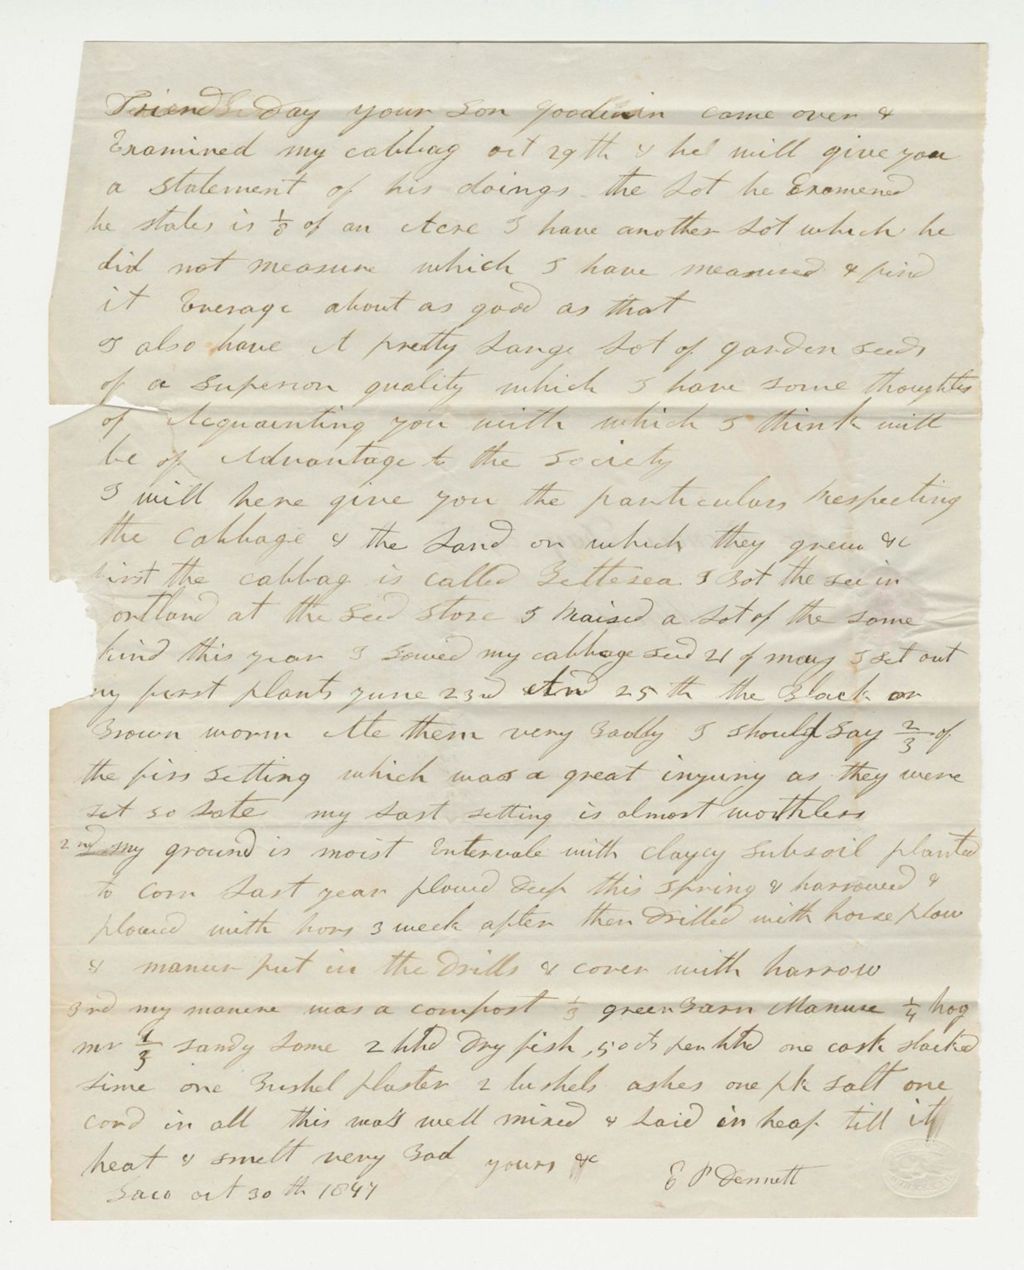 Friend Day your son goodwin came over &
Examined my cabbag oct 29th & he will give you
a statement of his doings the Lot he Examened
he states is 1/8 of an Acre I have another Lot which he
did not measure which I have measured & find
it Everage about as good as that
I also have A pretty Large Lot of garden seeds
of a Superior quality which I have some thoughts
of Acquainting you with which I think will
be of Advantage to the Society
I will here give you the particulars Respecting
the Cabbage & the Land on which they grew &c
first the cabbag is called I Bot the in
ortland at the Seed Store I Raised a Lot of the same
kind this year I Sowed my cabbage seed 21 of may I set out
my first plants June 23rd And 25th the Black or
Brown worm Ate them very Badly I should Say 2/3 of
the firs Setting which was a great injury as they were
set so Late my Last setting is almost worthless
2nd my ground is moist Entervale with clayey Subsoil planted
to corn Last year plowed Deep this Spring & harrowed &
plowed with hors 3 week after then Drilled with horse plow
& manur put in the Drills & cover with harrow
3rd my manure was a compost 1/3 green Barn Manure 1/4 hog
mr 1/3 sandy Lome 2 hhd Dry fish, 50 cts per hhd one cask slacked
Lime one Bushel plaster 2 bushels ashes one pk salt one
cord in all this was well mixed & Laid in heap till it
heat & smelt very Bad yours &c
E P Dennett
Saco oct 30th 1847